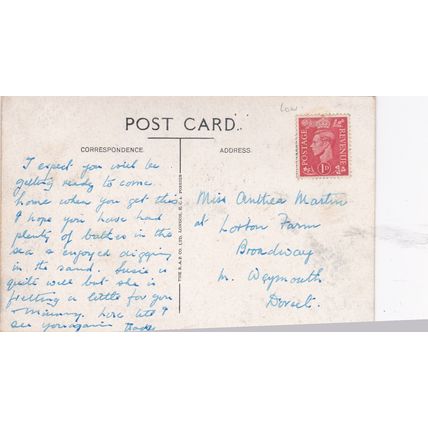 Low
POST CARD.
CORRESPONDENCE.
ADDRESS.
POSTAGE
REVENUE
1D
THE R.A.P. CO. LTD., LONDON, E.C.4
I expect you will be
getting ready to come
home when you get this
I hope you have had
plenty of bathes in the
sea & enjoyed digging
in the sand. Susie is
quite well but she is
fretting a little for you
& Mummy. Love till I
see you again
Miss Anthea Martin
at Lorton Farm
Broadway
Nr. Weymouth
Dorset.